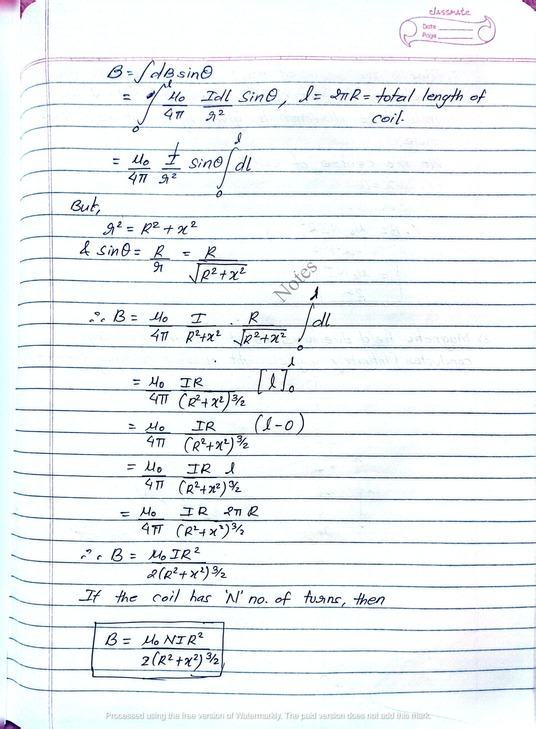 classmate
Date
Page
B = ∫ dB sinθ
= ∫₀ˡ μ₀/4π Idl/r² sinθ, l = 2πR = total length of
coil.
= μ₀/4π I/r² sinθ ∫₀ˡ dl
But,
r² = R² + x²
& sinθ = R/r = R/√(R² + x²)
Notes
∴ B = μ₀/4π I/(R² + x²) · R/√(R² + x²) ∫₀ˡ dl
= μ₀/4π IR/(R² + x²)^3/2 [l]₀ˡ
= μ₀/4π IR/(R² + x²)^3/2 (l - 0)
= μ₀/4π IR l/(R² + x²)^3/2
= μ₀/4π IR 2πR/(R² + x²)^3/2
∴ B = μ₀IR²/2(R² + x²)^3/2
If the coil has 'N' no. of turns, then
B = μ₀NIR²/2(R² + x²)^3/2
Processed using the free version of Watermarkly. The paid version does not add this mark.